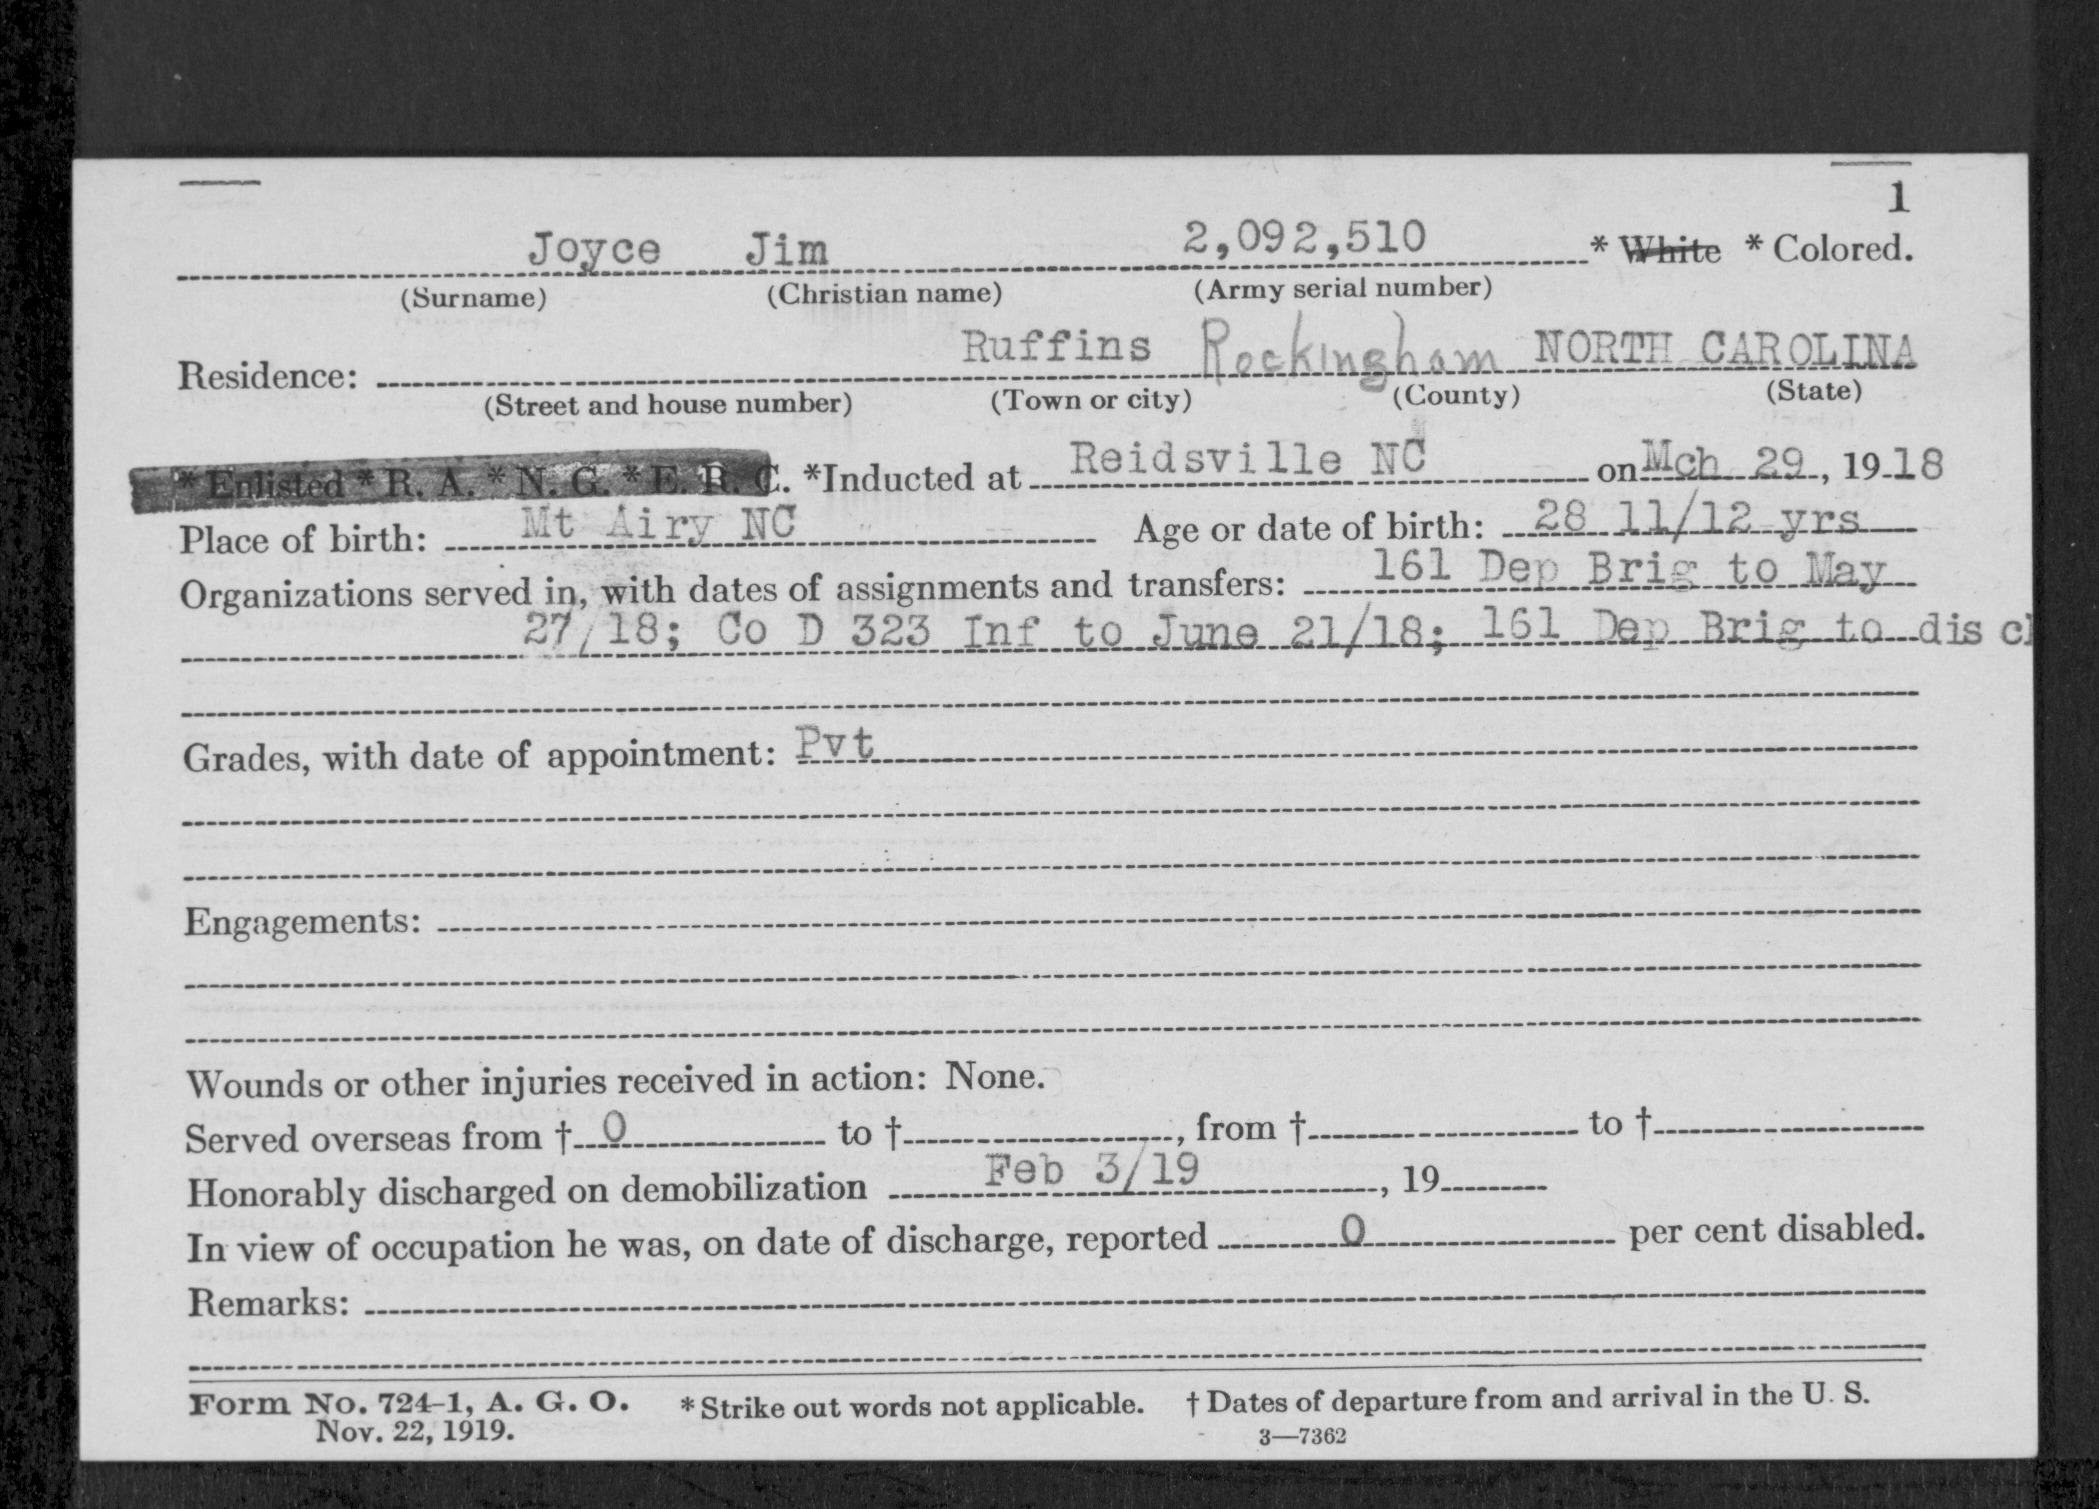 1
Joyce Jim 2,092,510 * White * Colored.
(Surname) (Christian name) (Army serial number)
Residence: Ruffins Rockingham NORTH CAROLINA
(Street and house number) (Town or city) (County) (State)
* Enlisted * R. A. * N. G. * E. R. C. *Inducted at Reidsville NC on Mch 29, 1918
Place of birth: Mt Airy NC Age or date of birth: 28 11/12 yrs
Organizations served in, with dates of assignments and transfers: 161 Dep Brig to May
27/18; Co D 323 Inf to June 21/18; 161 Dep Brig to disch
Grades, with date of appointment: Pvt
Engagements:
Wounds or other injuries received in action: None.
Served overseas from † 0 to †, from † to †
Honorably discharged on demobilization Feb 3/19, 19
In view of occupation he was, on date of discharge, reported 0 per cent disabled.
Remarks:
Form No. 724-1, A. G. O. * Strike out words not applicable. † Dates of departure from and arrival in the U. S.
Nov. 22, 1919. 3—7362